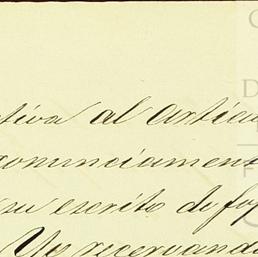 ativa al Articu
ronunciament
su escrito de fo
Yo reservand